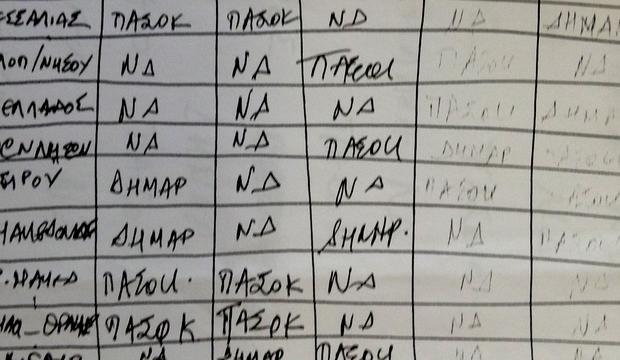 ΕΣΣΑΛΙΑΣ ΠΑΣΟΚ ΠΑΣΟΚ ΝΔ ΝΔ ΔΗΜΑΡ
ΛΟΠ/ΝΗΣΟΥ ΝΔ ΝΔ ΠΑΣΟΚ ΠΑΣΟΚ ΝΔ
ΕΛΛΑΔΟΣ ΝΔ ΝΔ ΝΔ ΠΑΣΟΚ ΔΗΜΑΡ
ΝΔ ΝΔ ΠΑΣΟΚ ΔΗΜΑΡ ΠΑΣΟΚ
ΕΙΡΟΥ ΔΗΜΑΡ ΝΔ ΝΔ ΠΑΣΟΚ
ΔΗΜΑΡ ΝΔ ΔΗΜΑΡ. ΝΔ ΠΑΣΟΚ
ΠΑΣΟΚ. ΠΑΣΟΚ ΝΔ ΝΔ ΝΔ
ΠΑΣΟΚ ΠΑΣΟΚ ΝΔ ΝΔ ΝΔ
ΝΔ ΔΗΜΑΡ ΠΑΣΟΚ